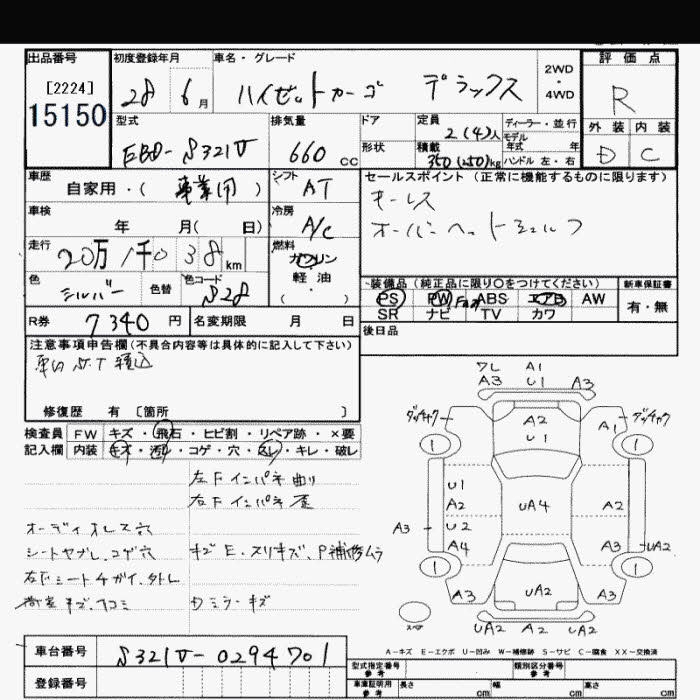 出品番号 初度登録年月 車名・グレード 2WD・4WD 評価点
[2224]
15150
28年 6月 ハイゼットカーゴ デラックス R
型式 排気量 ドア 定員 ディーラー・並行 外装 内装
EBD-S321V 660cc 2(4)人 モデル年式 年 D C
形状 積載 350(250)kg ハンドル 左・右
車歴 自家用・(事業用) シフト AT
セールスポイント(正常に機能するものに限ります)
キーレス
オーバーヘッドシェルフ
車検 年 月(日) 冷房 A/C
走行 20万1千038km 燃料 ガソリン
軽油・( )
色 シルバー 色替 色コード S28
装備品(純正品に限り〇をつけてください) 新車保証書
PS PW ABS エアB AW 有・無
SR ナビ TV カワ
R券 7340円 名変期限 月 日
後日品
注意事項申告欄(不具合内容等は具体的に記入して下さい)
車内 S.T 積込
修復歴 有 [箇所 ]
検査員 FW キズ・飛石・ヒビ割・リペア跡・×要
記入欄 内装 キズ・汚れ・コゲ・穴・スレ・キレ・破レ
左Fインパネ曲り
右Fインパネ歪
オーディオレス穴
シートヤブレ、コゲ穴 キズE、スリキズ、P補修ムラ
左右シートチガイ、外トレ
荷室キズ、凹コミ Dミラーキズ
ワレ A1
A3 U1 A3
A2 A1
U1
1 1
U1
A2 UA4 A2
A3 U2
A4 A3 UA2
1 1
A3 UA2 A3
スペア
UA2 A2 UA2
A-キズ E-エクボ U-凹み W-補修跡 S-サビ C-腐食 XX-交換済
車台番号 S321V-0294701
登録番号
型式指定番号 参考 類別区分番号 参考
車庫証明用 参考 長さ cm 幅 cm 高さ cm